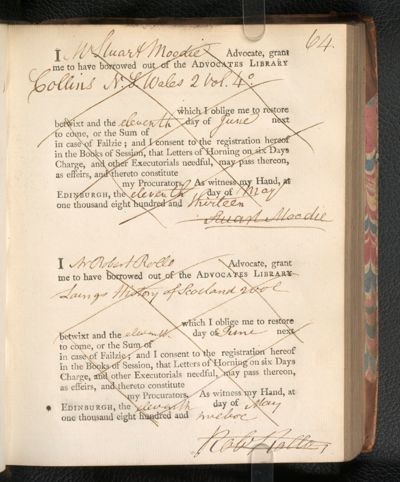 64.
I Mr Stuart Moodie Advocate, grant
me to have borrowed out of the ADVOCATES LIBRARY
Collins N. S Wales 2 vol. 4o
which I oblige me to restore
betwixt and the eleventh day of June next
to come, or the Sum of
in case of Failzie; and I consent to the registration hereof
in the Books of Session, that Letters of Horning on six Days
Charge, and other Executorials needful, may pass thereon,
as effeirs, and thereto constitute
my Procurators. As witness my Hand, at
EDINBURGH, the eleventh day of May
one thousand eight hundred and thirteen
Stuart Moodie
I Mr Robert Rollo Advocate, grant
me to have borrowed out of the ADVOCATES LIBRARY
Laings History of Scotland 2 vol
which I oblige me to restore
betwixt and the eleventh day of June next
to come, or the Sum of
in case of Failzie; and I consent to the registration hereof
in the Books of Session, that Letters of Horning on six Days
Charge, and other Executorials needful, may pass thereon,
as effeirs, and thereto constitute
my Procurators. As witness my Hand, at
EDINBURGH, the eleventh day of May
one thousand eight hundred and
Rob Rollo